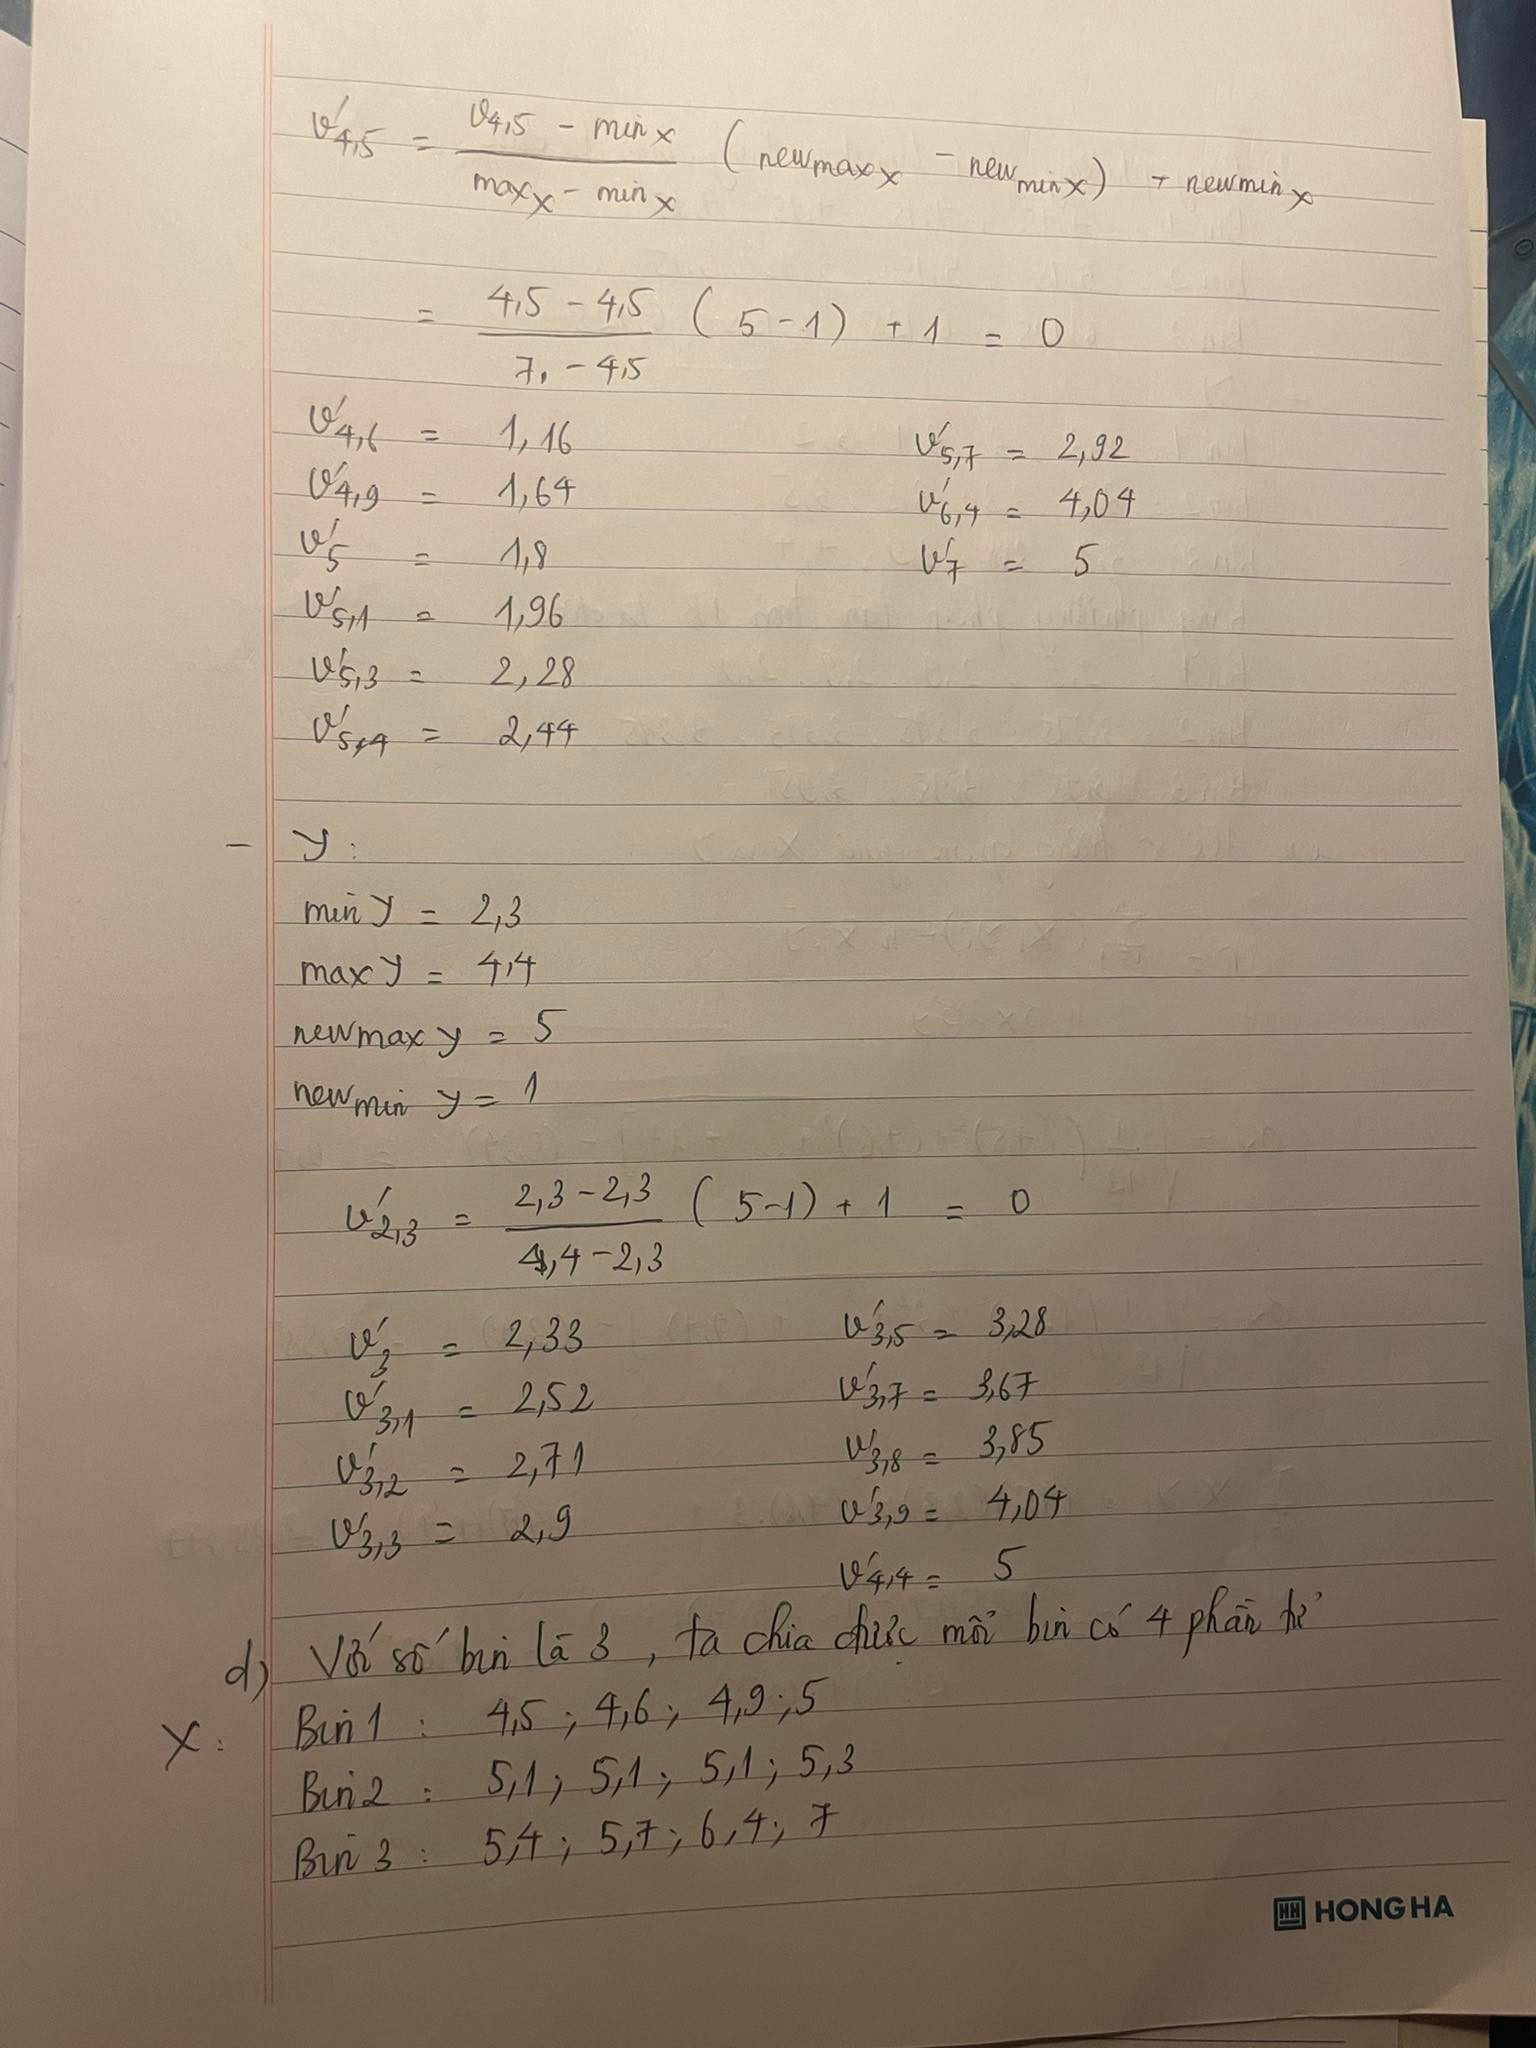 v'4,5 = (v4,5 - minx)/(maxx - minx) (newmaxx - newminx) + newminx
= (4,5 - 4,5)/(7, - 4,5) (5-1) + 1 = 0
v'4,6 = 1,16 v'5,7 = 2,92
v'4,9 = 1,64 v'6,4 = 4,04
v'5 = 1,8 v'7 = 5
v'5,1 = 1,96
v'5,3 = 2,28
v'5,4 = 2,44
- y:
min y = 2,3
max y = 4,4
newmax y = 5
newmin y = 1
v'2,3 = (2,3 - 2,3)/(4,4 - 2,3) (5-1) + 1 = 0
v'3 = 2,33 v'3,5 = 3,28
v'3,1 = 2,52 v'3,7 = 3,67
v'3,2 = 2,71 v'3,8 = 3,85
v'3,3 = 2,9 v'3,9 = 4,04
v'4,4 = 5
d) Với số bin là 3, ta chia được mỗi bin có 4 phần tử
X: Bin 1 : 4,5 ; 4,6 ; 4,9 ; 5
Bin 2 : 5,1 ; 5,1 ; 5,1 ; 5,3
Bin 3 : 5,4 ; 5,7 ; 6,4 ; 7
HH HONG HA